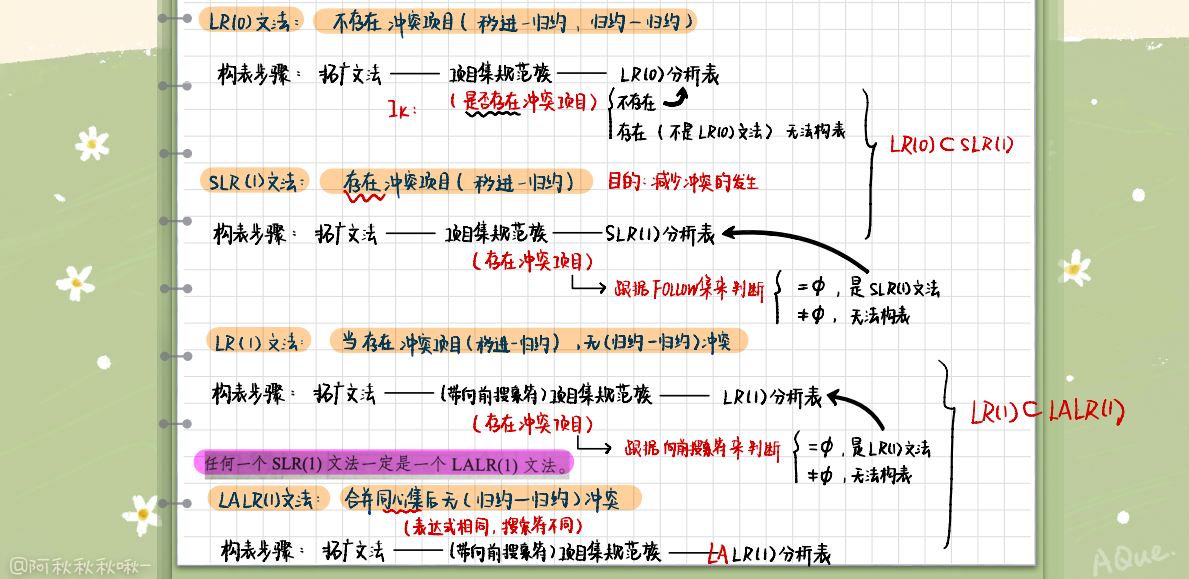 LR(0)文法： 不存在冲突项目(移进-归约，归约-归约)
构表步骤： 拓广文法 —— 项目集规范族 —— LR(0)分析表
Ik： (是否存在冲突项目) 不存在
存在(不是LR(0)文法) 无法构表
LR(0)⊂SLR(1)
SLR(1)文法： 存在冲突项目(移进-归约) 目的：减少冲突的发生
构表步骤： 拓广文法 —— 项目集规范族 —— SLR(1)分析表
(存在冲突项目)
跟据FOLLOW集来判断 =Φ，是SLR(1)文法
≠Φ，无法构表
LR(1)文法： 当存在冲突项目(移进-归约)，无(归约-归约)冲突
构表步骤： 拓广文法 —— (带向前搜索符)项目集规范族 —— LR(1)分析表
(存在冲突项目)
LR(1)⊂LALR(1)
跟据向前搜索符来判断 =Φ，是LR(1)文法
≠Φ，无法构表
任何一个 SLR(1) 文法一定是一个 LALR(1) 文法。
LALR(1)文法： 合并同心集后无(归约-归约)冲突
(表达式相同，搜索符不同)
构表步骤： 拓广文法 —— (带向前搜索符)项目集规范族 —— LALR(1)分析表
@阿秋秋秋啾-
AQue.